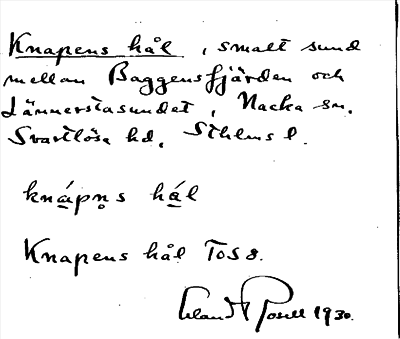 Knapens hål, smalt sund
mellan Baggensfjärden och
Lännerstasundet, Nacka sn.
Svartlösa hd, Sthlms l.
kná̱pn̥s há̱l
Knapens hål TOS 8.
Erland Rosell 1930.